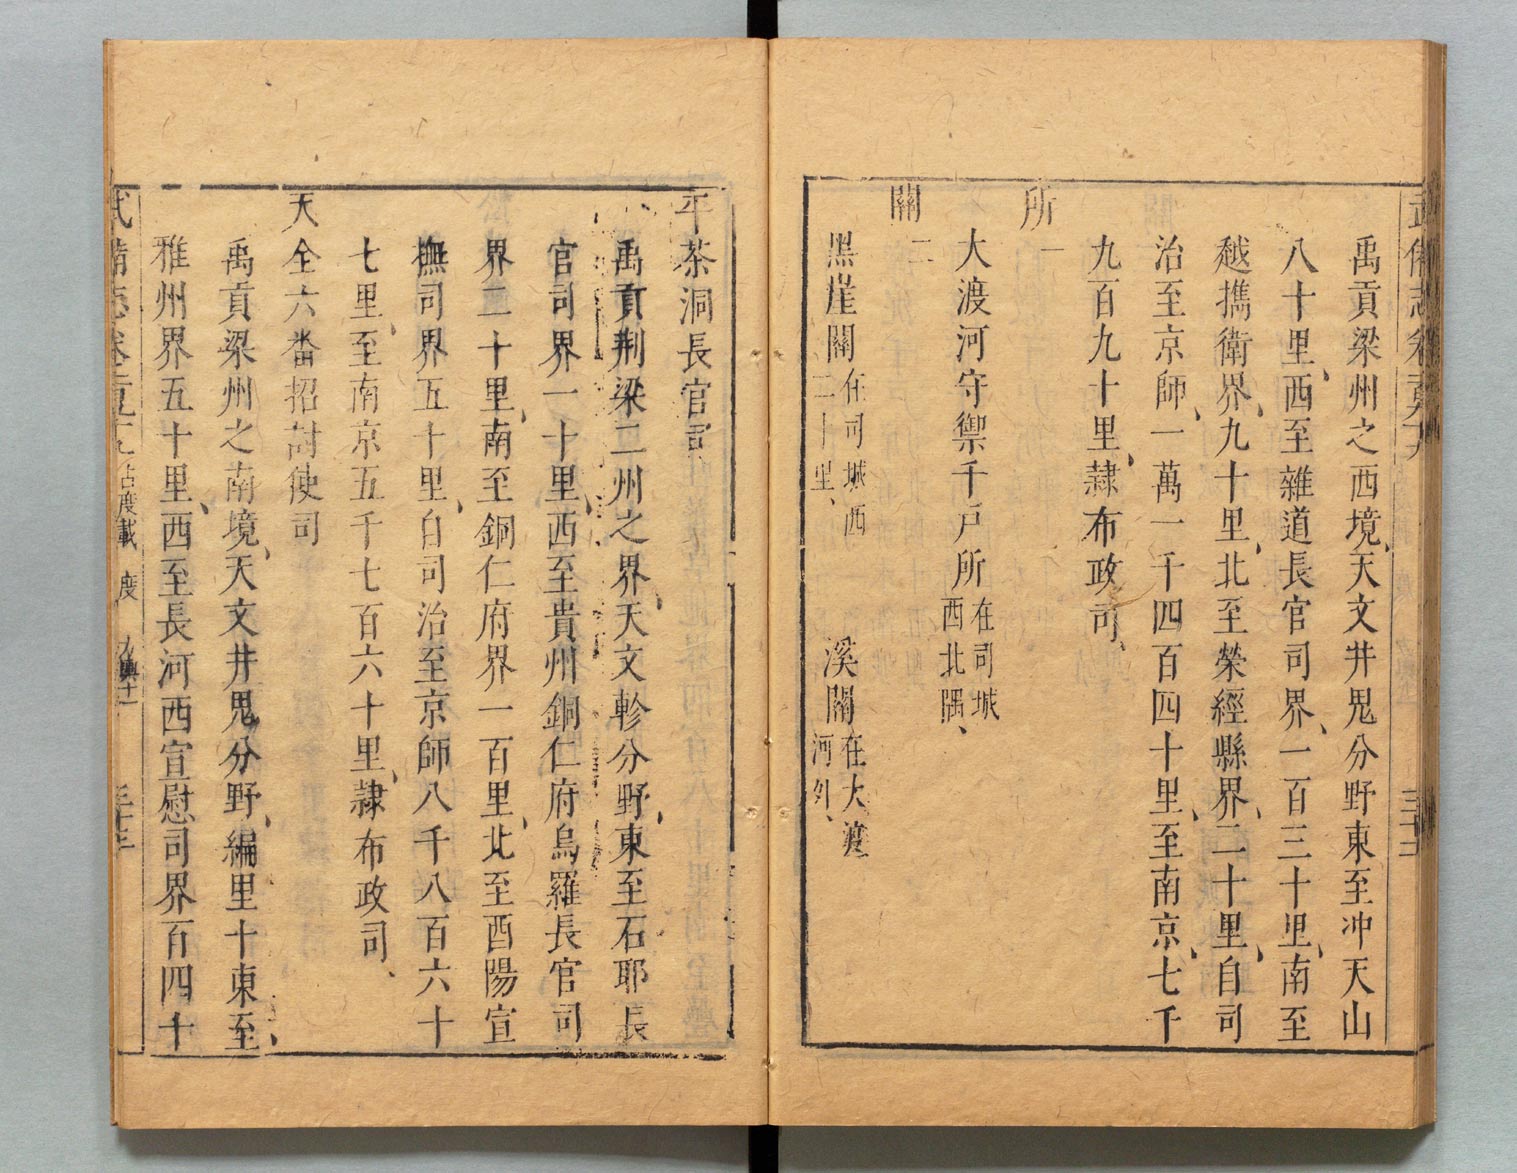 禹貢梁州之西境、天文井鬼分野東至冲天山
八十里、西至雜道長官司界、一百三十里、南至
越攜衛界、九十里、北至榮經縣界、二十里、自司
治至京師、一萬一千四百四十里、至南京、七千
九百九十里、隷布政司、
所一
大渡河守禦千戶所在司城西北隅、
關二
黑崖關在司城西二十里、 溪關在大渡河外、
平茶洞長官司、
禹貢荆梁二州之界、天文軫分野、東至石耶長
官司界一十里、西至貴州銅仁府烏羅長官司
界二十里、南至銅仁府界一百里、北至酉陽宣
撫司界五十里、自司治至京師八千八百六十
七里、至南京五千七百六十里、隷布政司、
天全六番招討使司
禹貢梁州之南境、天文井鬼分野、編里十東至、
雅州界五十里、西至長河西宣慰司界百四十
武備志卷 占度載 度